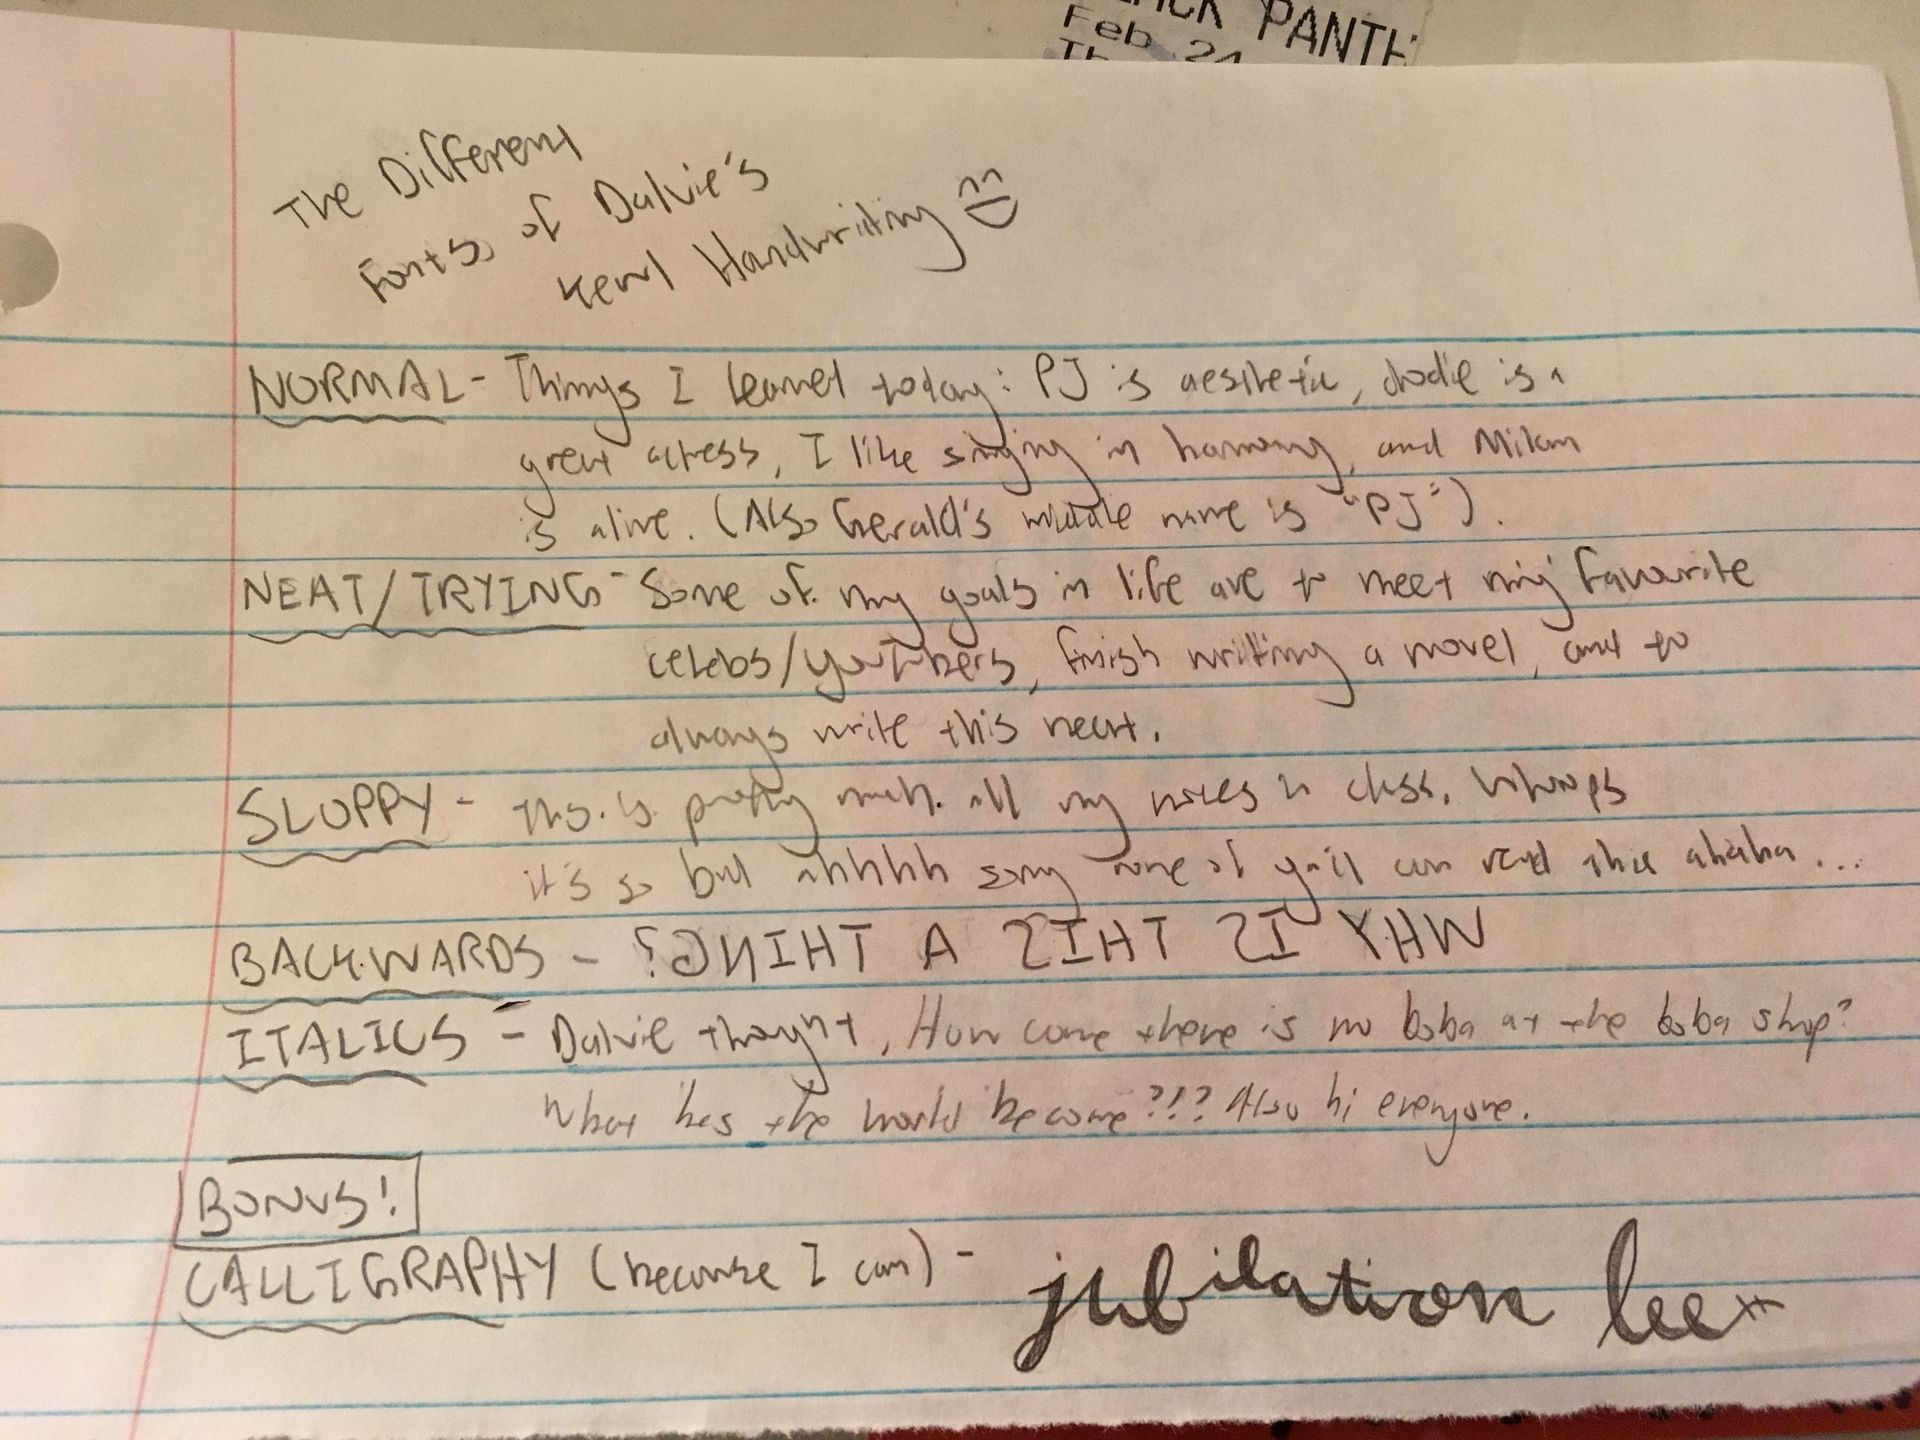 PANTH
Feb 24
The Different
Fonts of Dalvie's
Handwriting
NORMAL - Things I learned today: PJ is aesthetic, dodie is a
great actress, I like singing in harmony, and Milan
is alive. (Also Gerald's middle name is "PJ").
NEAT/TRYING - Some of my goals in life are to meet my favourite
celebs/youtubers, finish writing a novel, and to
always write this neat.
SLOPPY - This is pretty much all my notes in class. Whoops
it's so bad ahhhhh sorry none of y'all can read this ahaha...
BACKWARDS - WHY IS THIS A THING?
ITALICS - Dalvie thought, How come there is no boba at the boba shop?
What has the world become?!? Also hi everyone.
BONUS!
CALLIGRAPHY (because I can) - jubilation lee